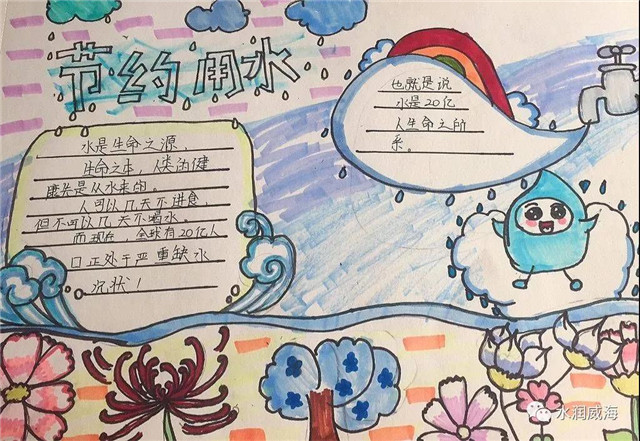 节约用水
水是生命之源,
生命之本,人类的健
康先是从水来的。
人可以几天不进食,
但不可以几天不喝水。
而现在,全球有20亿人
口正处于严重缺水
沉状!
也就是说
水是20亿
人生命之所
系。
水润威海